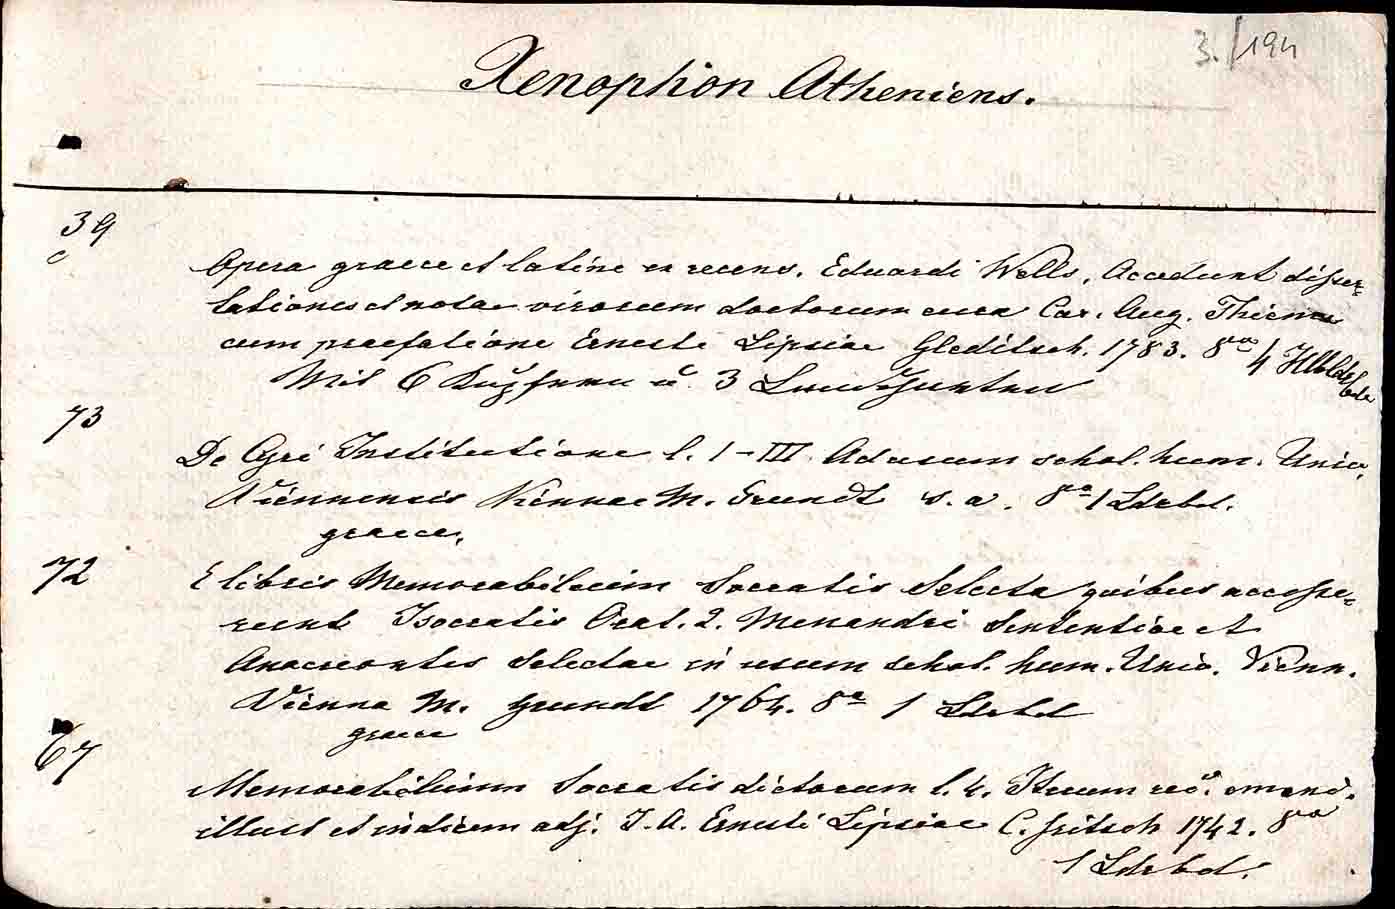 3./194
Xenophon Atheniens.
39
c
Opera graece et latine ex recens. Eduardi Wells. Accedunt disser-
tationes et notae virorum doctorum cura Car. Aug. Thieme
cum praefatione Ernesti Lipsiae Gleditsch. 1783. 8vo 4 Hlbldrbde
Mit 6 Kupfern u. 3 Landkarten
73
De Cyri Institutione l. I-III. Ad usum schol. hum. Univ.
Viennensis Viennae M. Grundt s. a. 8vo 1 Ldrbd.
graece.
72
E libris Memorabilium Socratis Selecta quibus accesse-
runt Isocratis Orat. 2. Menandri Sententiae et
Anacreontis Selectae in usum schol. hum. Univ. Vienn.
Vienna M. Grundt 1764. 8o 1 Ldrbd
graece
67
Memorabilium Socratis dictorum l. 4. Iterum rec. emend.
illust et indicem adj. I. A. Ernesti Lipsiae C. Fritsch 1742. 8vo
1 Ldrbd.